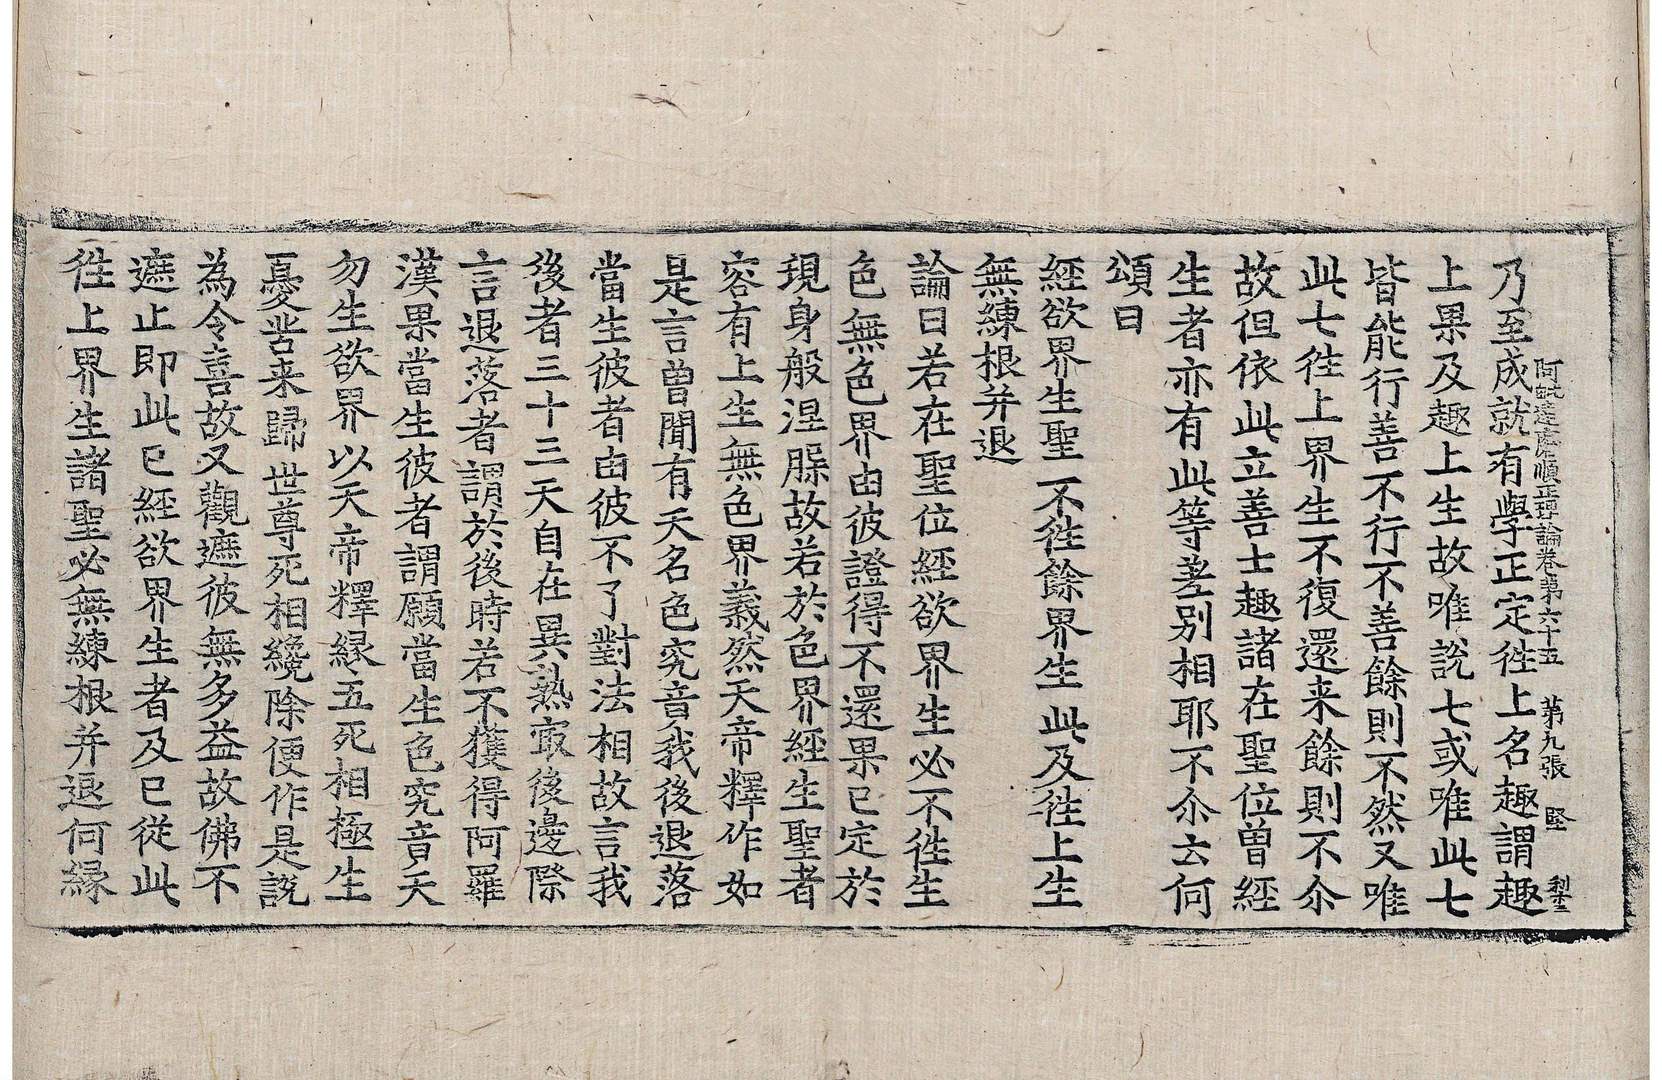 阿毗達磨順正理論卷第六十五 第九張 堅
乃至成就有學正定徃上名趣謂趣
上果及趣上生故唯說七或唯此七
皆能行善不行不善餘則不然又唯
此七徃上界生不復還来餘則不尒
故但依此立善士趣諸在聖位曾經
生者亦有此等差別相耶不尒云何
頌曰
經欲界生聖 不徃餘界生 此及徃上生
無練根并退
論曰若在聖位經欲界生必不徃生
色無色界由彼證得不還果已定於
現身般涅槃故若於色界經生聖者
容有上生無色界義然天帝釋作如
是言曾聞有天名色究竟我後退落
當生彼者由彼不了對法相故言我
後者三十三天自在異熟㝡後邊際
言退落者謂於後時若不獲得阿羅
漢果當生彼者謂願當生色究竟天
勿生欲界以天帝釋緣五死相極生
憂苦来歸世尊死相纔除便作是說
為令喜故又觀遮彼無多益故佛不
遮止即此已經欲界生者及已從此
徃上界生諸聖必無練根并退何緣